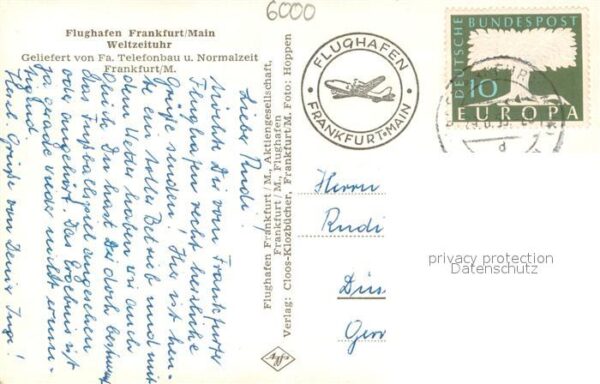 6000
Flughafen Frankfurt/Main
Weltzeituhr
Geliefert von Fa. Telefonbau u. Normalzeit
Frankfurt/M.
Lieber Rudi!
möchte Dir vom Frankfurter
Flughafen recht herzliche
Grüße senden! Hier ist heu-
te ein toller Betrieb und mit
dem Wetter haben wir auch
Glück. Du hast Dir doch bestimmt
das Fußballspiel angesehen
oder angehört. Das Ergebnis ist
ja gerade wieder nicht ermu-
tigend.
Herzl. Grüße von Deiner Inge!
Flughafen Frankfurt/M., Aktiengesellschaft,
Frankfurt/M., Flughafen
Verlag: Cloos-Klozbücher, Frankfurt/M. Foto: Hoppen
Agfa
FLUGHAFEN
FRANKFURT-MAIN
DEUTSCHE BUNDESPOST
10
EUROPA
d
Herrn
Rudi
privacy protection
Datenschutz